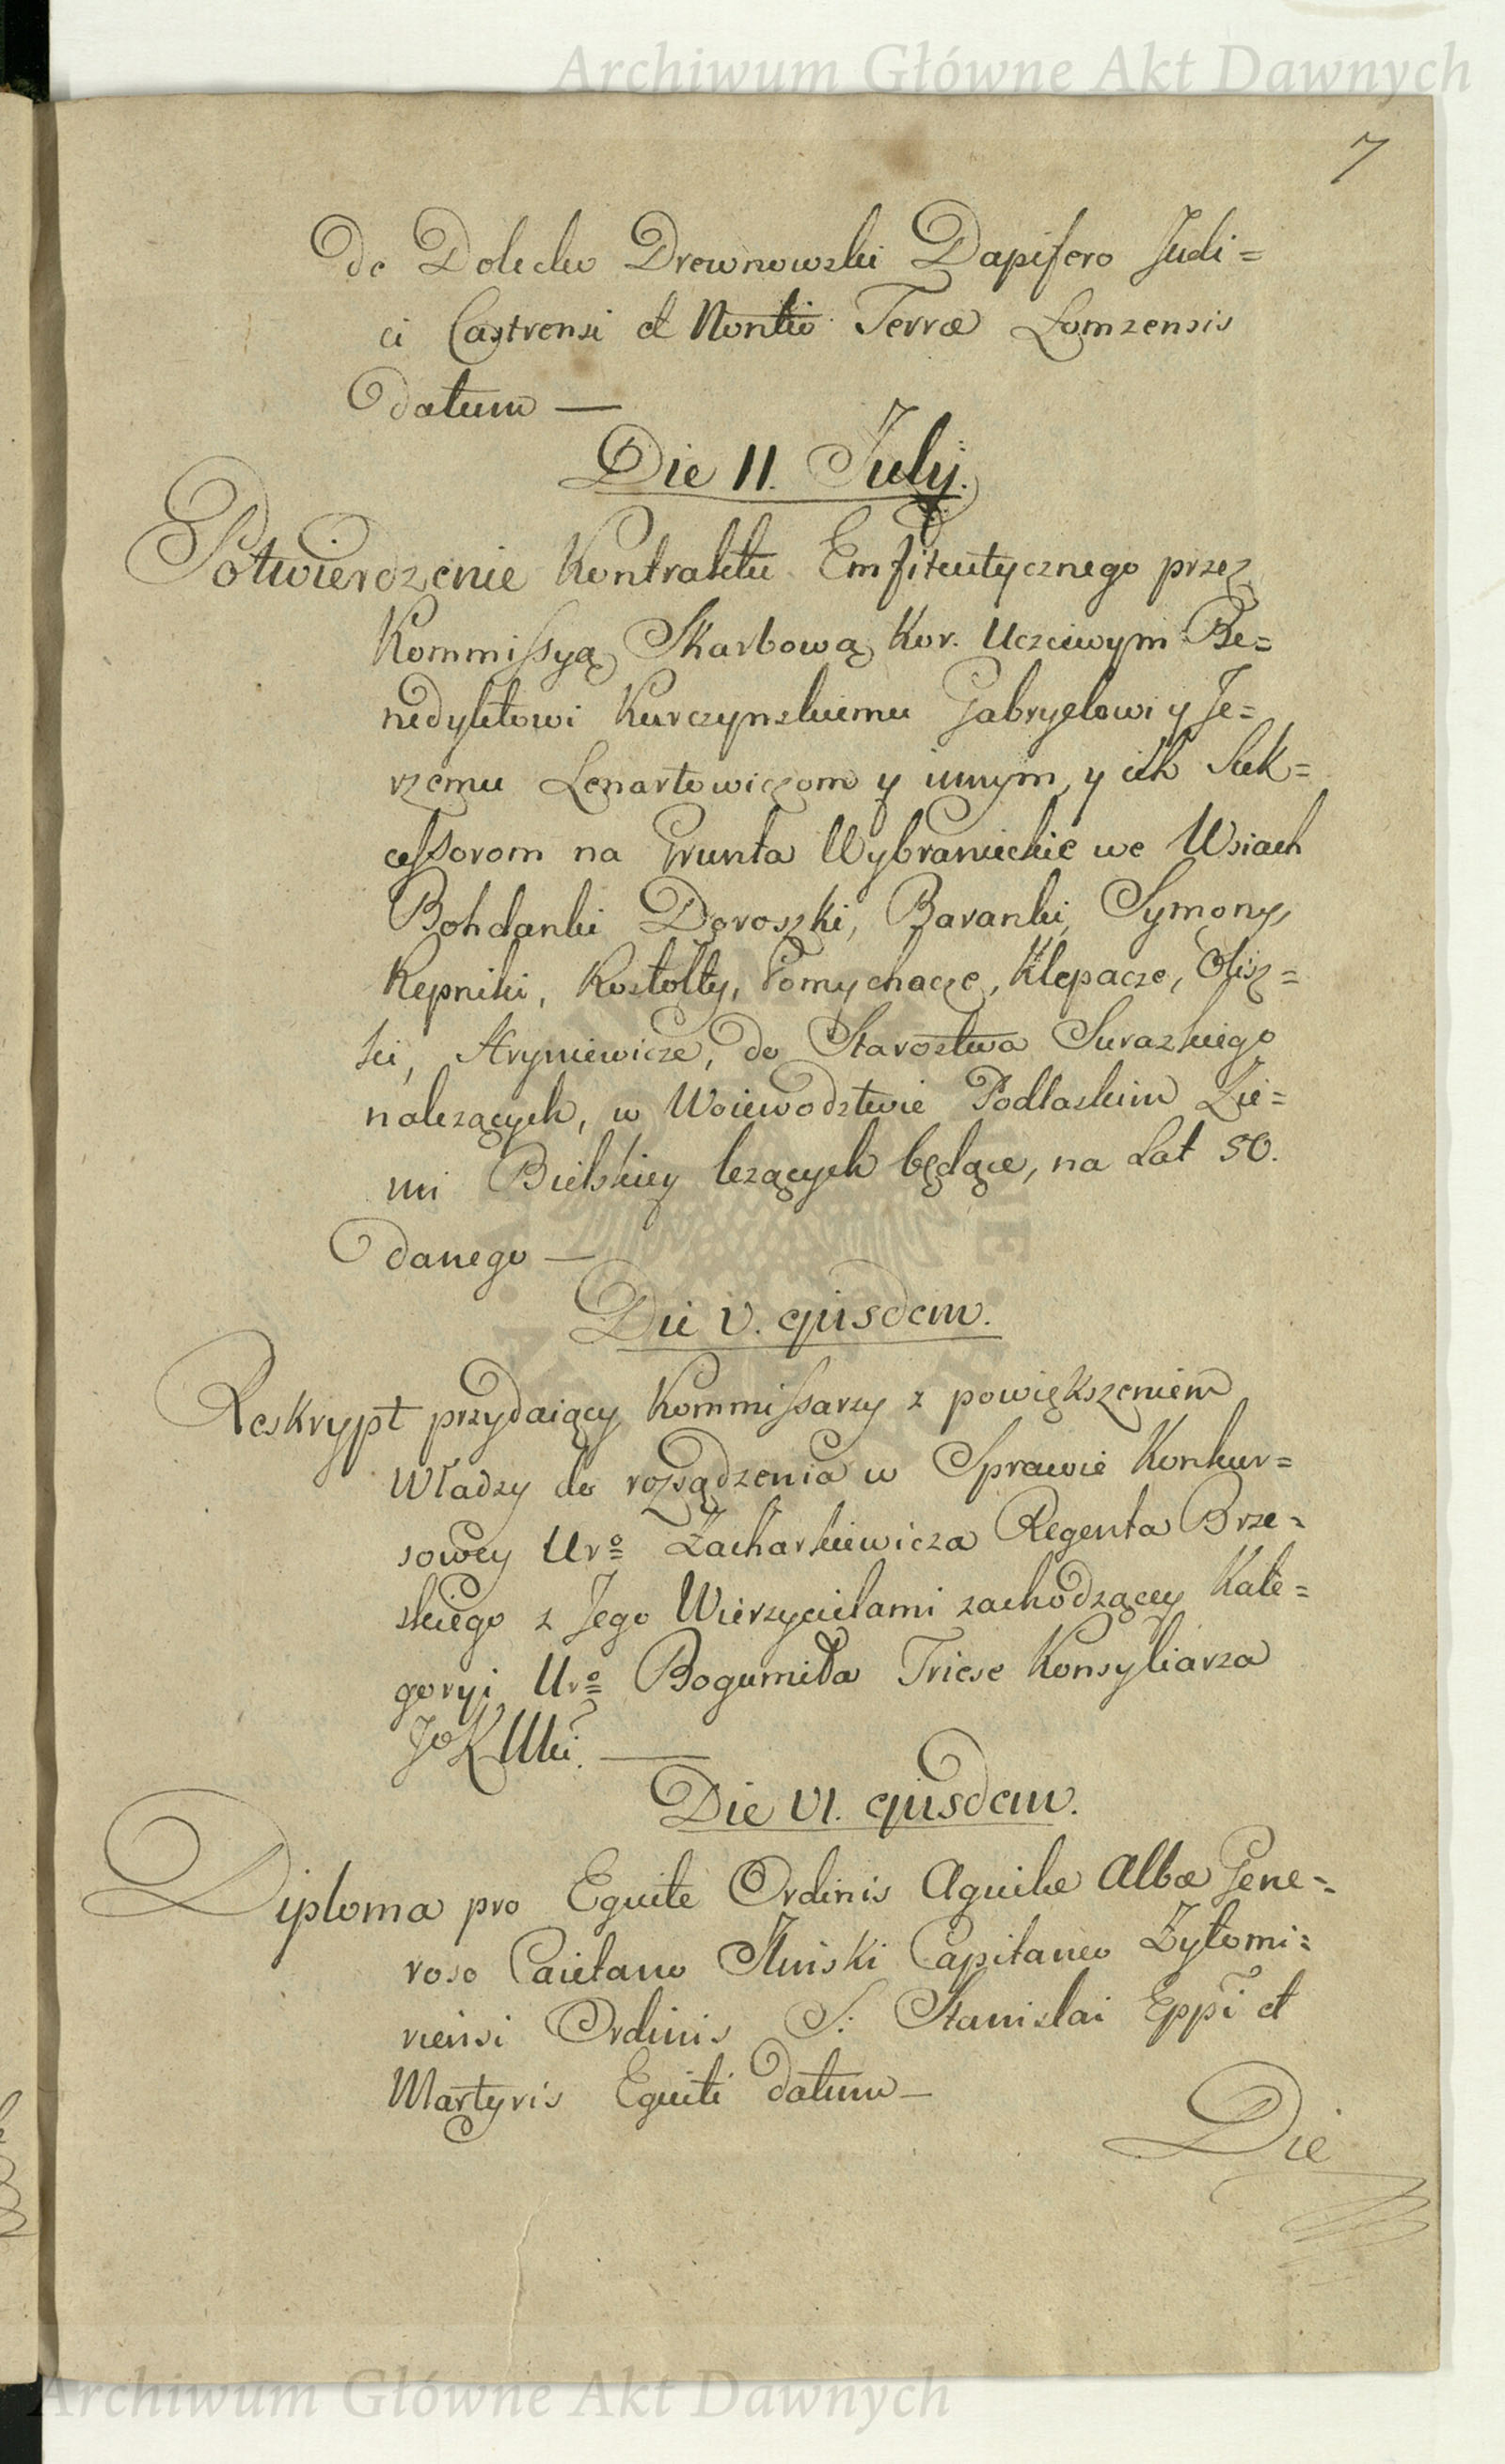 Archiwum Główne Akt Dawnych
7
de Dolecko Drewnowski Dapifero Judi=
ci Castrensi et Nontio Terræ Lomzensis
datum —
Die II. July.
Potwierdzenie Kontraktu Emfiteutycznego przez
Kommissyą Skarbową Kor. Uczciwym Be=
nedyktowi Kurczynskiemu Gabryelowi y Je=
rzemu Lenartowiczom y innym y ich Suk=
cessorom na Grunta Wybranieckie we Wsiach
Bohdanki Doroszki, Baranki, Symony,
Kepniki, Kostołty, Pomychacze, Klepacze, Olisz=
ki, Hryniewicze, do Starostwa Suraskiego
nalezących, w Woiewodztwie Podlaskim Zie=
mi Bielskiey lezących będące, na Lat 50.
danego —
Die V. ejusdem.
Reskrypt przydaiący Kommissarzy z powiększeniem
Władzy do rozsądzenia w Sprawie Konkur=
sowey Uro Zacharkiewicza Regenta Brze=
skiego z Jego Wierzycielami zachodzącey Kate=
goryi Uro Bogumiła Triese Konsyliarza
JoKMki. —
Die VI. ejusdem.
Diploma pro Equite Ordinis Aquilæ Albæ Gene=
roso Caietano Iliński Capitaneo Zytomi=
riensi Ordinis S: Stanislai Eppi et
Martyris Equiti datum —
Die
Archiwum Główne Akt Dawnych